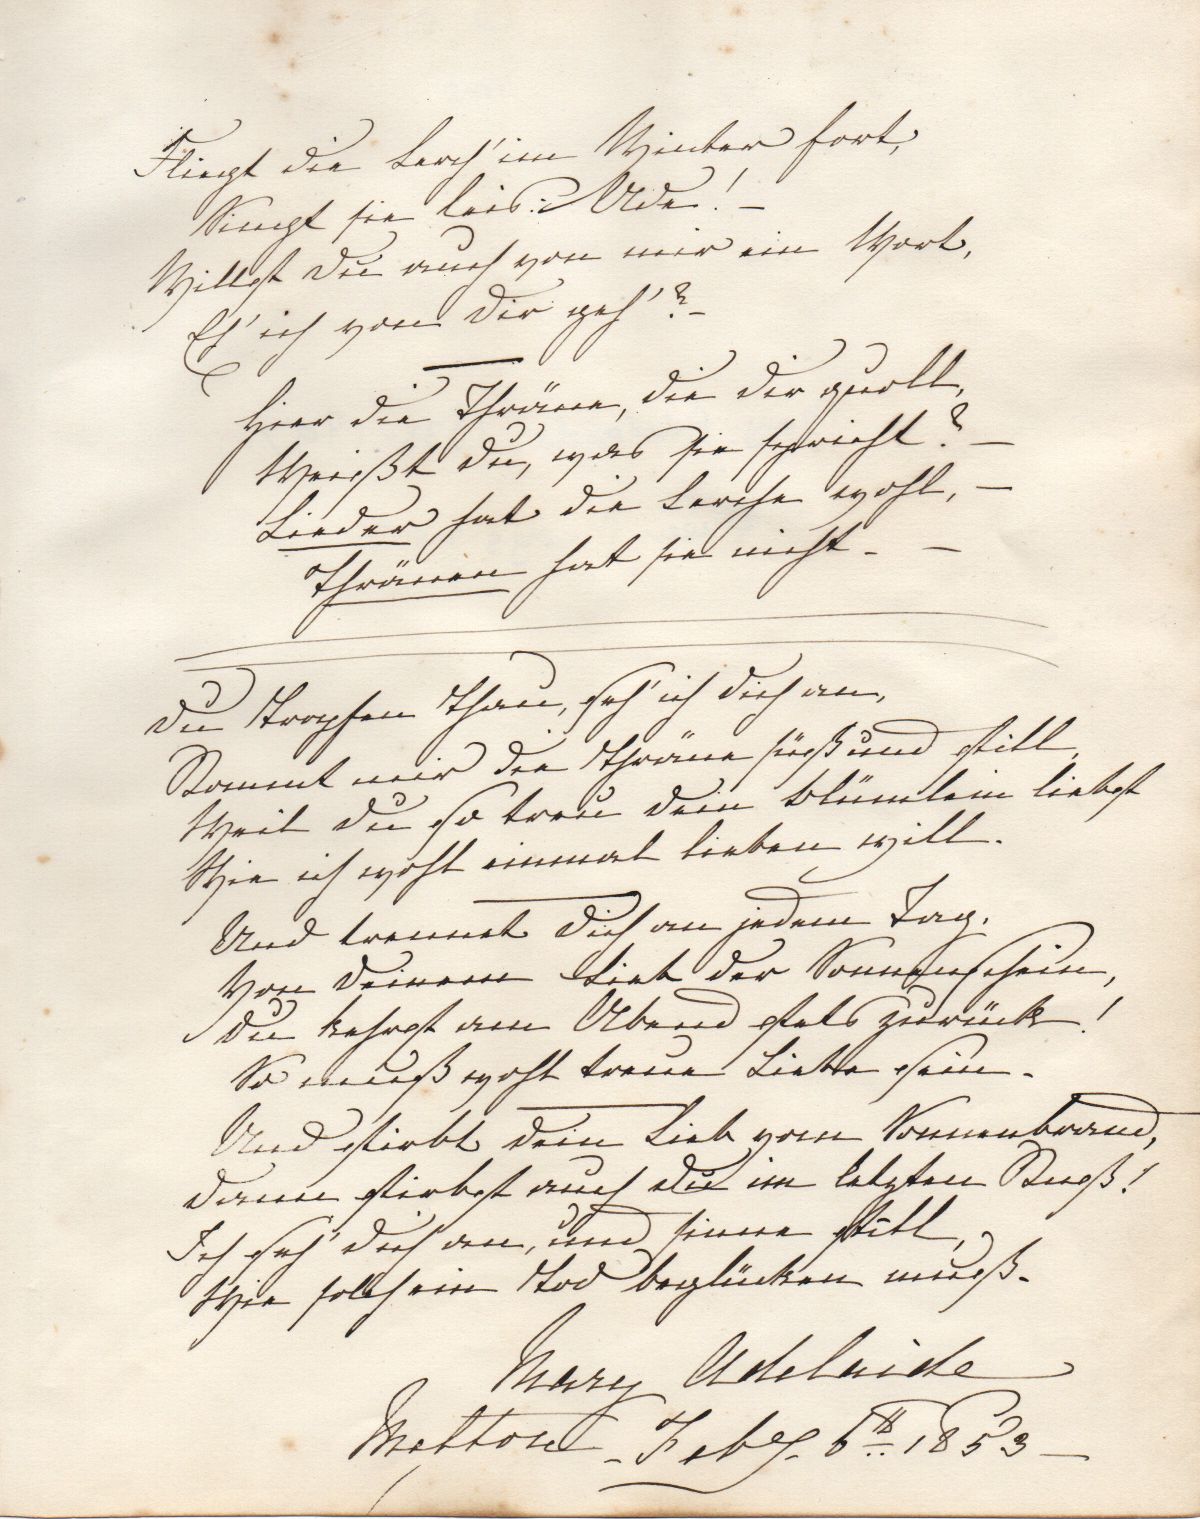 Fliegt die Lerch' im Winter fort,
Singt sie leis: Ade! –
Willst Du auch von mir ein Wort,
Eh' ich von Dir geh'? –
Hier die Thräne, die dir quoll,
Weißt du, was sie spricht? –
Lieder hat die Lerche wohl, –
Thränen hat sie nicht – –
Du Tropfen Thau, seh' ich dich an,
Kommt mir die Thräne süß und still,
Weil du so treu dein Blümlein liebst
Wie ich wohl einmal lieben will.
Und trennet Dich an jedem Tag.
Von Deinem Lieb der Sonnenschein,
Du kehrst am Abend stets zurück!
So muß wohl treue Liebe sein.
Und stirbt dein Lieb vom Sonnenbrand,
Dann stirbst auch du im letzten Kuß!
Ich seh' dich an, und sinne still,
Wie solch ein Tod beglücken muß.
Mary Adelaide
Melton – Feby. 6th 1853 –